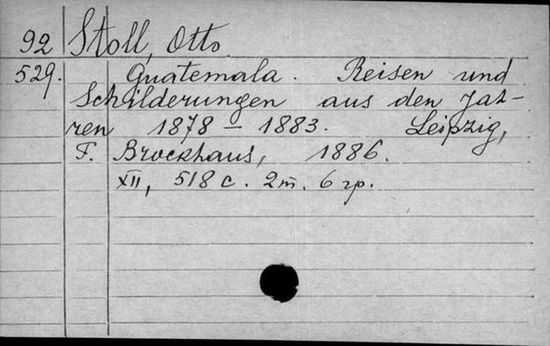 92 Stoll, Otto.
529. Guatemala. Reisen und
Schilderungen aus den Jah-
ren 1878 – 1883. Leipzig,
F. Brockhaus, 1886.
XII, 518 c. 2 m. 6 гр.